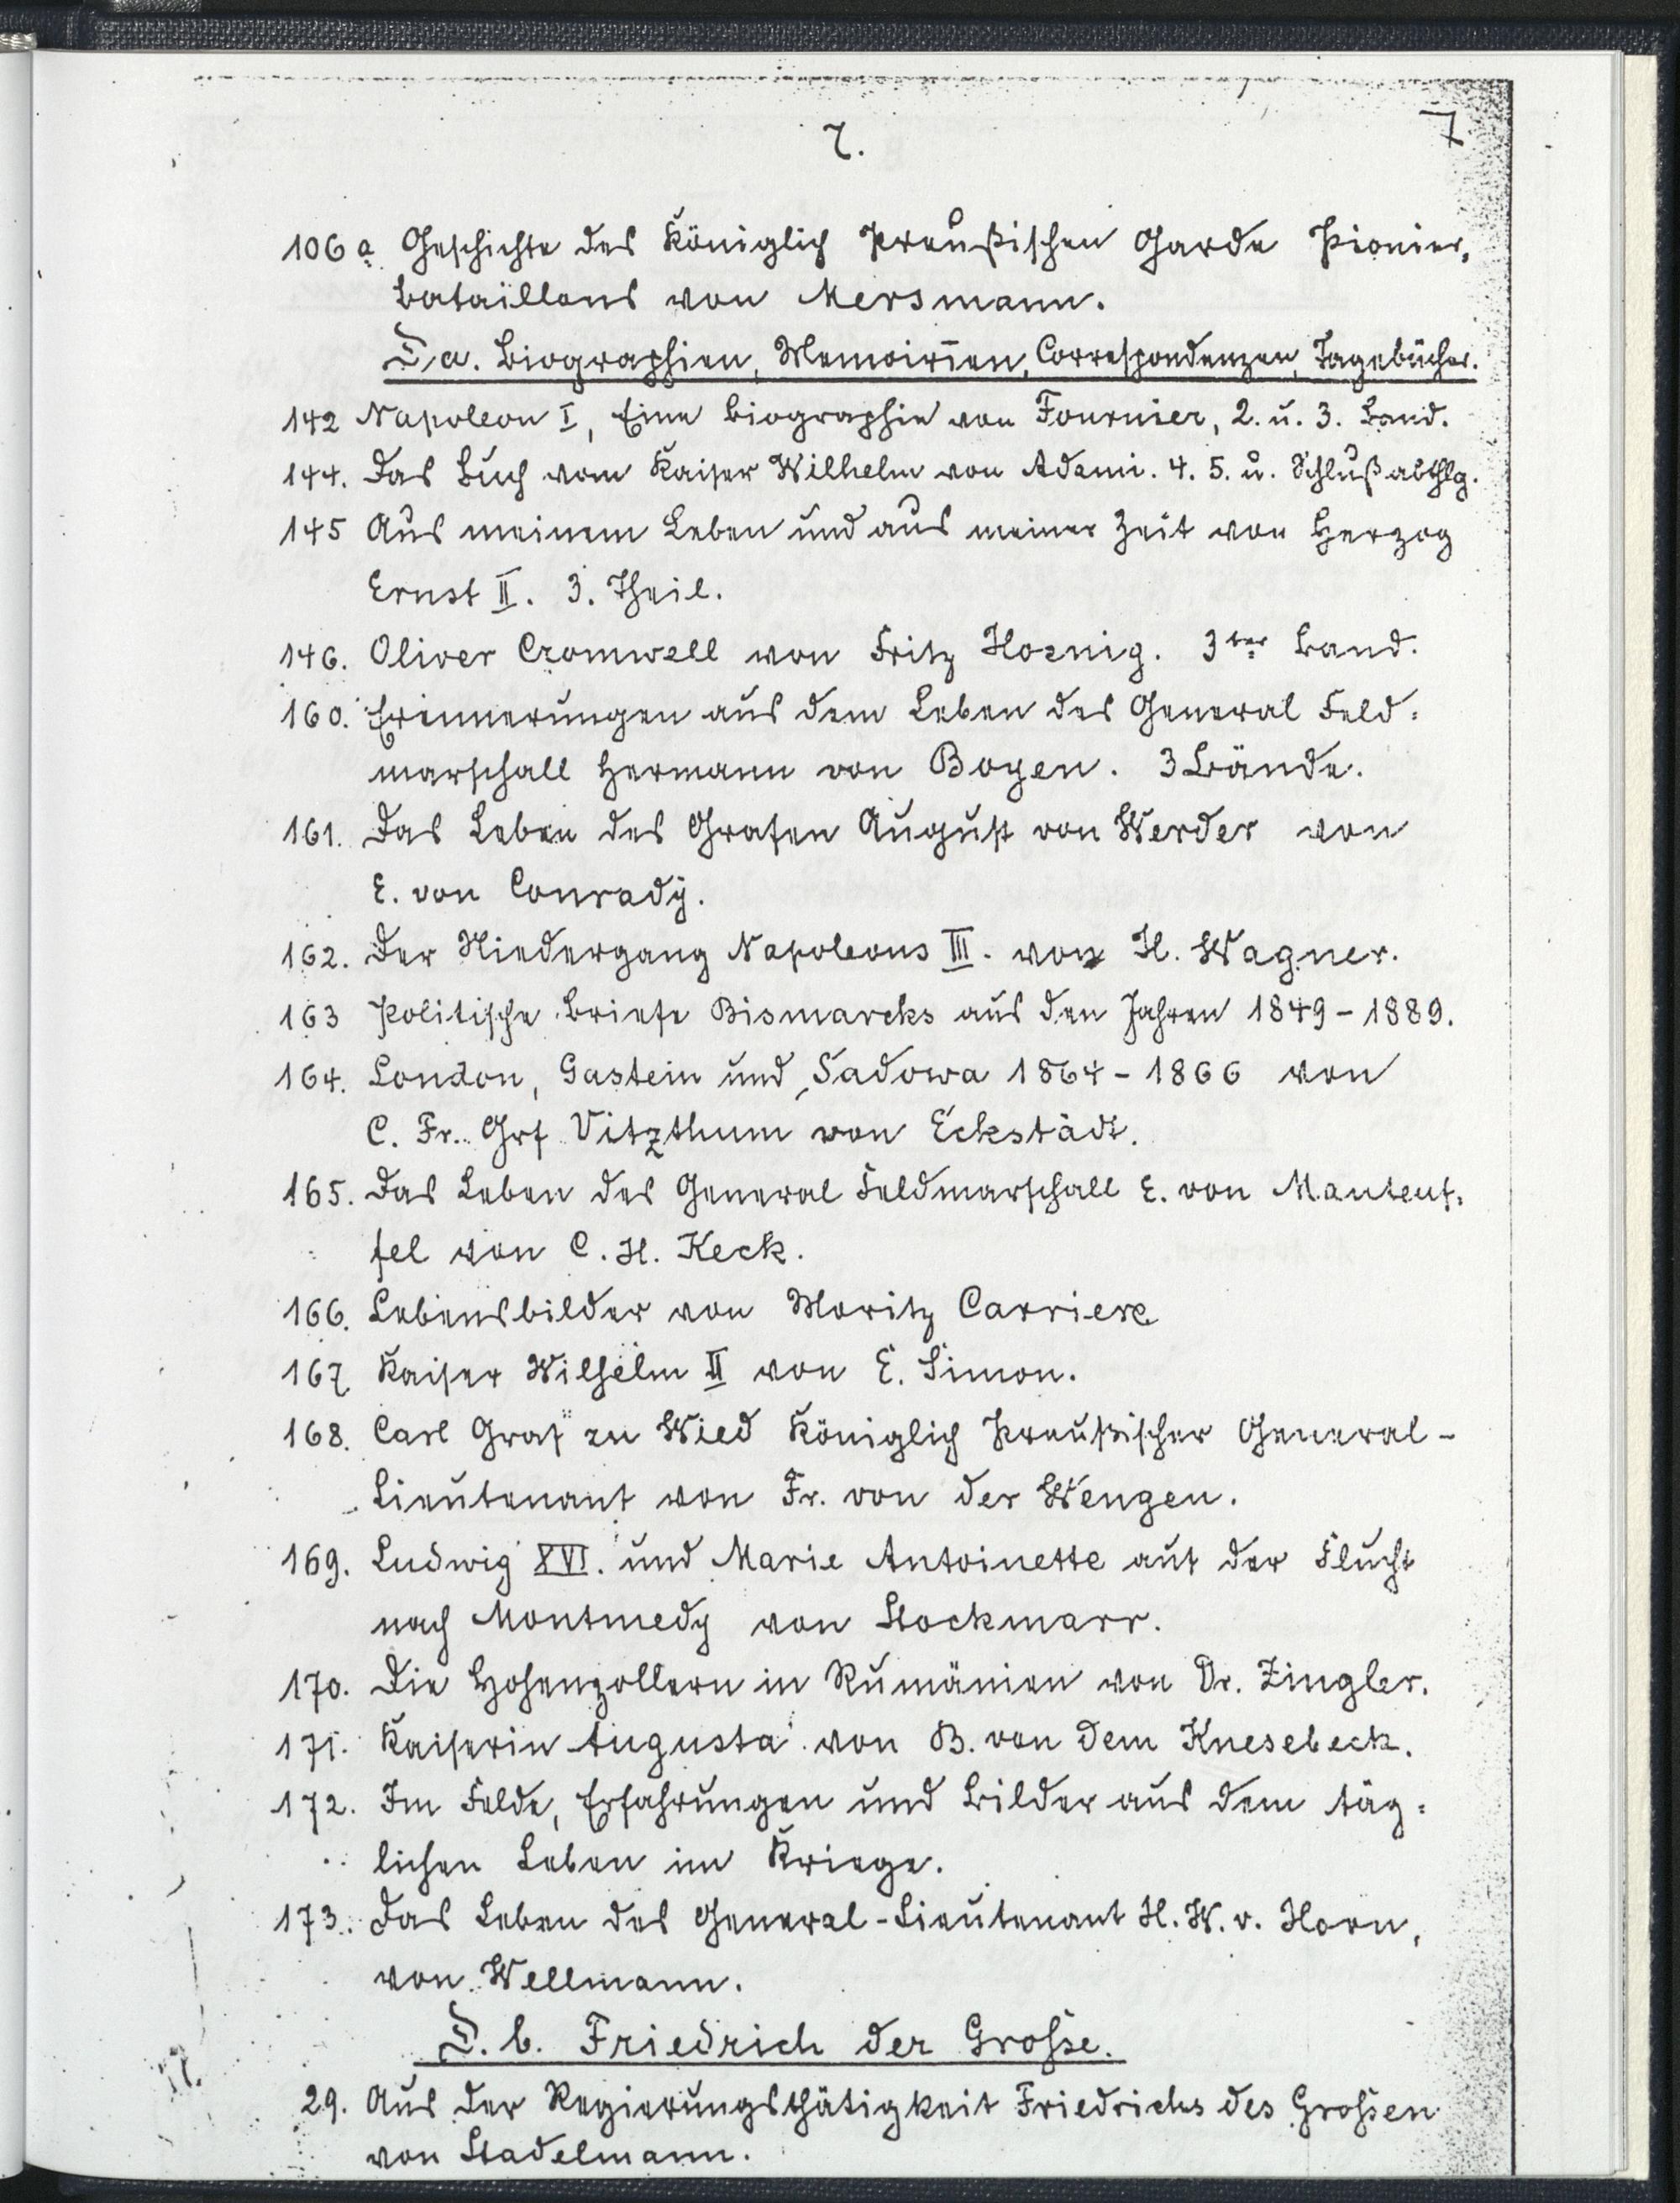 7.
7
106 a Geschichte des Königlich Preußischen Garde Pionier-
Bataillons von Mersmann.
D a. Biographien, Memoiren, Correspondenzen, Tagebücher.
142 Napoleon I, Eine Biographie von Fournier, 2. u. 3. Band.
144. Das Buch vom Kaiser Wilhelm von Adami. 4. 5. u. Schlußabthlg.
145 Aus meinem Leben und aus meiner Zeit von Herzog
Ernst II. 3. Theil.
146. Oliver Cromwell von Fritz Hoenig. 3ter Band.
160. Erinnerungen aus dem Leben des General Feld-
marschall Hermann von Boyen. 3 Bände.
161. Das Leben des Grafen August von Werder von
E. von Conrady.
162. Der Niedergang Napoleons III. von H. Wagner.
163 Politische Briefe Bismarcks aus den Jahren 1849-1889.
164. London, Gastein und Sadowa 1864-1866 von
C. Fr. Grf Vitzthum von Eckstädt.
165. Das Leben des General Feldmarschall E. von Manteuf-
fel von C. H. Keck.
166. Lebensbilder von Moritz Carriere
167. Kaiser Wilhelm II von E. Simon.
168. Carl Graf zu Wied Königlich Preußischer General-
Lieutenant von Fr. von der Wengen.
169. Ludwig XVI. und Marie Antoinette auf der Flucht
nach Montmedy von Stockmarr.
170. Die Hohenzollern in Rumänien von Dr. Zingler.
171. Kaiserin Augusta von B. von dem Knesebeck.
172. Im Felde, Erfahrungen und Bilder aus dem täg-
lichen Leben im Kriege.
173. Das Leben des General-Lieutenant H. W. v. Horn,
von Wellmann.
D. b. Friedrich der Grosse.
29. Aus der Regierungsthätigkeit Friedrichs des Grossen
von Stadelmann.